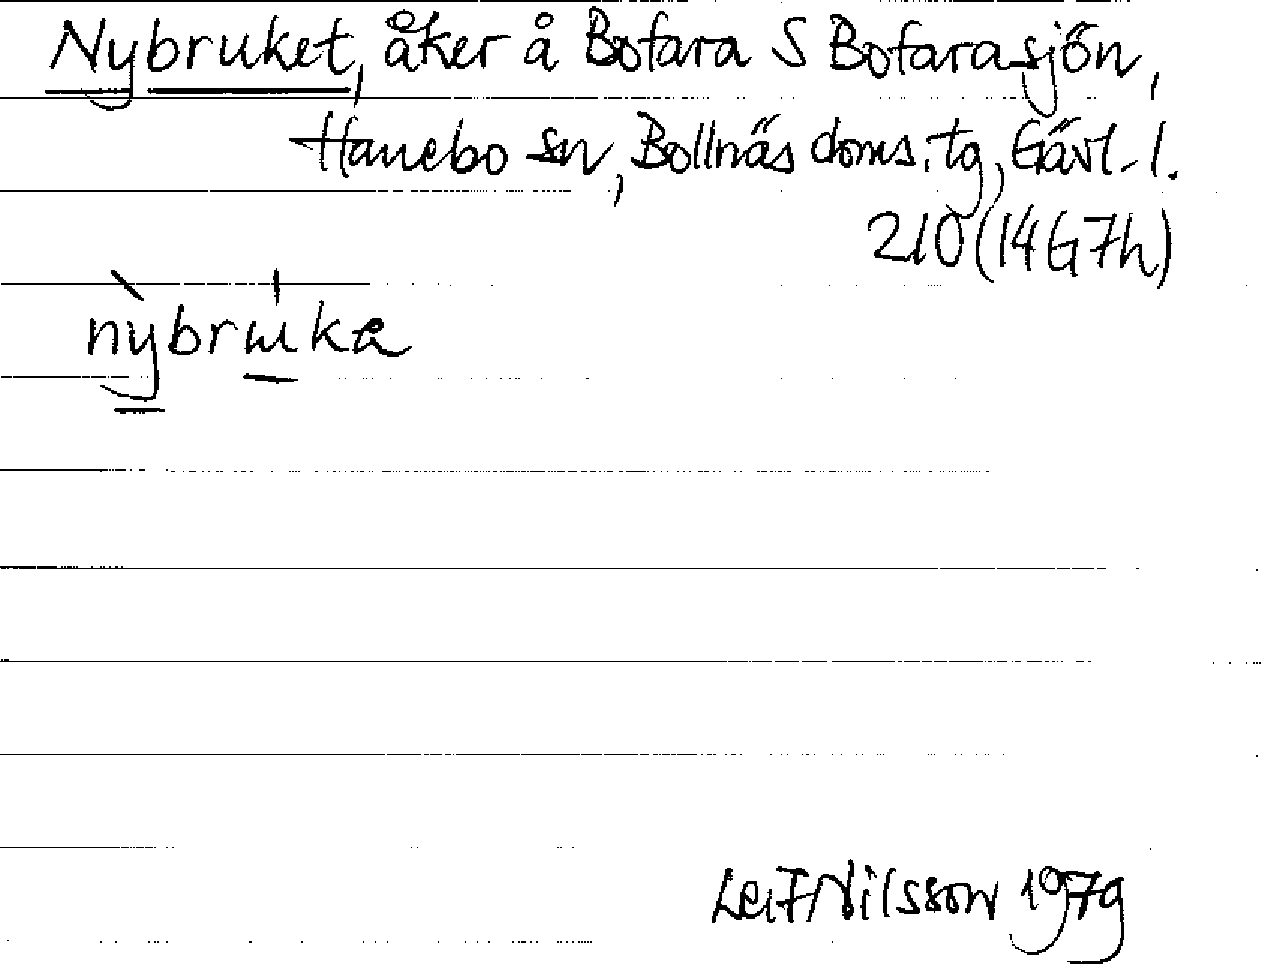 Nybruket, åker å Bofara S Bofarasjön,
Hanebo sn, Bollnäs doms. tg, Gävl. l.
210 (14G7h)
nybruka
Leif Nilsson 1979